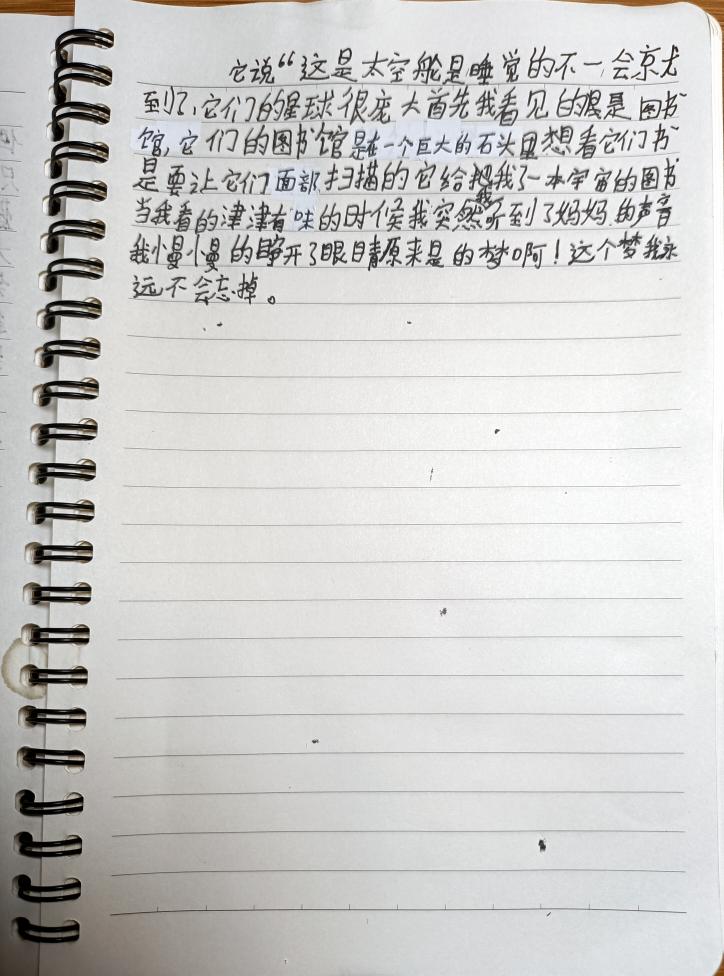 它说“这是太空舱是睡觉的不一会京尤
到了,它们的星球很庞大首先我看见的是图书
馆,它们的图书馆是在一个巨大的石头里想看它们书
是要让它们面部扫描的它给我了一本宇宙的图书
当我看的津津有味的时候我突然听到了妈妈的声音
我慢慢的睁开了眼睛原来是的梦啊!这个梦我永
远不会忘掉。